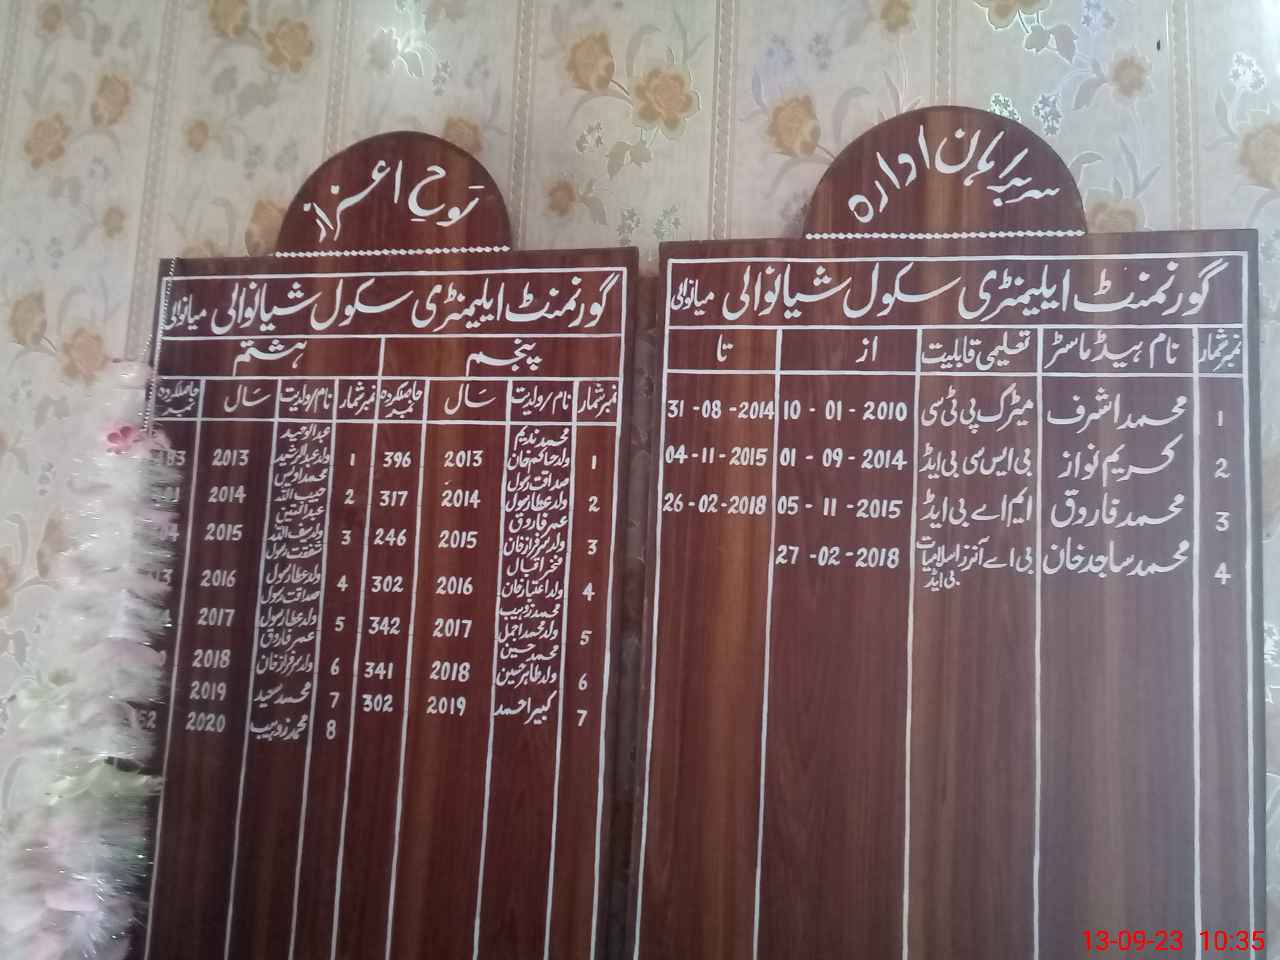 سربراہان ادارہ
گورنمنٹ ایلیمنٹری سکول شیانوالی میانوالی
نمبرشمار نام ہیڈماسٹر تعلیمی قابلیت از تا
1 محمد اشرف میٹرک پی ٹی سی 10-01-2010 31-08-2014
2 کریم نواز بی ایس سی بی ایڈ 01-09-2014 04-11-2015
3 محمد فاروق ایم اے بی ایڈ 05-11-2015 26-02-2018
4 محمد ساجد خان بی اے آنرز اسلامیات بی ایڈ 27-02-2018
لوح اعزاز
گورنمنٹ ایلیمنٹری سکول شیانوالی میانوالی
پنجم ہشتم
نمبرشمار نام/ولدیت سال حاصلکردہ نمبر نمبرشمار نام/ولدیت سال حاصلکردہ نمبر
1 محمد ندیم ولد حاکم خان 2013 396 1 عبدالوحید ولد عبدالرشید 2013
2 صداقت رسول ولد عطار سول 2014 317 2 محمد اویس حبیب اللہ 2014
3 عمر فاروق ولد سرفراز خان 2015 246 3 عبدالمتین ولد سیف اللہ 2015
4 فخر اقبال ولد اعتبار خان 2016 302 4 شفقت رسول ولد عطار سول 2016
5 محمد زوہیب ولد محمد اجمل 2017 342 5 صداقت رسول ولد عطار سول 2017
6 محمد حسین ولد طاہر حسین 2018 341 6 عمر فاروق ولد سرفراز خان 2018
7 کبیر احمد 2019 302 7 محمد سعید 2019
8 محمد زوہیب 2020
13-09-23 10:35